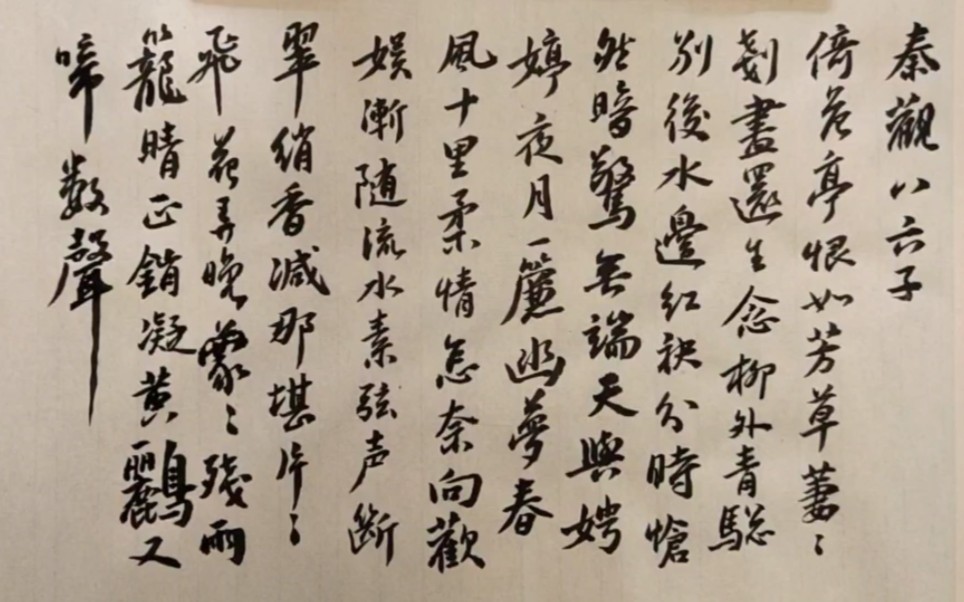 秦觀八六子
倚危亭恨如芳草萋〻
剗盡還生念柳外青驄
别後水邊紅袂分時愴
然暗驚無端天與娉
婷夜月一簾幽夢春
風十里柔情怎奈向歡
娱漸隨流水素弦声斷
翠綃香减那堪片〻
飛花弄晚蒙〻殘雨
籠晴正銷凝黄鸝又
啼數聲